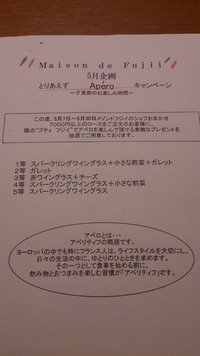 Maison de Fujii
5月企画
とりあえず Apéro キャンペーン
～夕食前のお楽しみ時間～
この度、5月7日～5月30日メゾンドフジイのシェフおまかせ
7000円以上のコースをご注文のお客様に、
隣の"プティ フジイ"でアペロを楽しんで頂ける素敵なプレゼントを
抽選でご用意しております。
1等 スパークリングワイングラス+小さな前菜+ガレット
2等 ガレット
3等 赤ワイングラス+チーズ
4等 スパークリングワイングラス+小さな前菜
5等 スパークリングワイングラス
アペロとは・・・
アペリティフの略語です。
ヨーロッパの中でも特にフランス人は、ライフスタイルを大切にし、
日々の生活の中に、ゆとりのひとときを求めます。
その一つとして食事を始める前に、
飲み物とおつまみを楽しむ習慣が「アペリティフ」です。